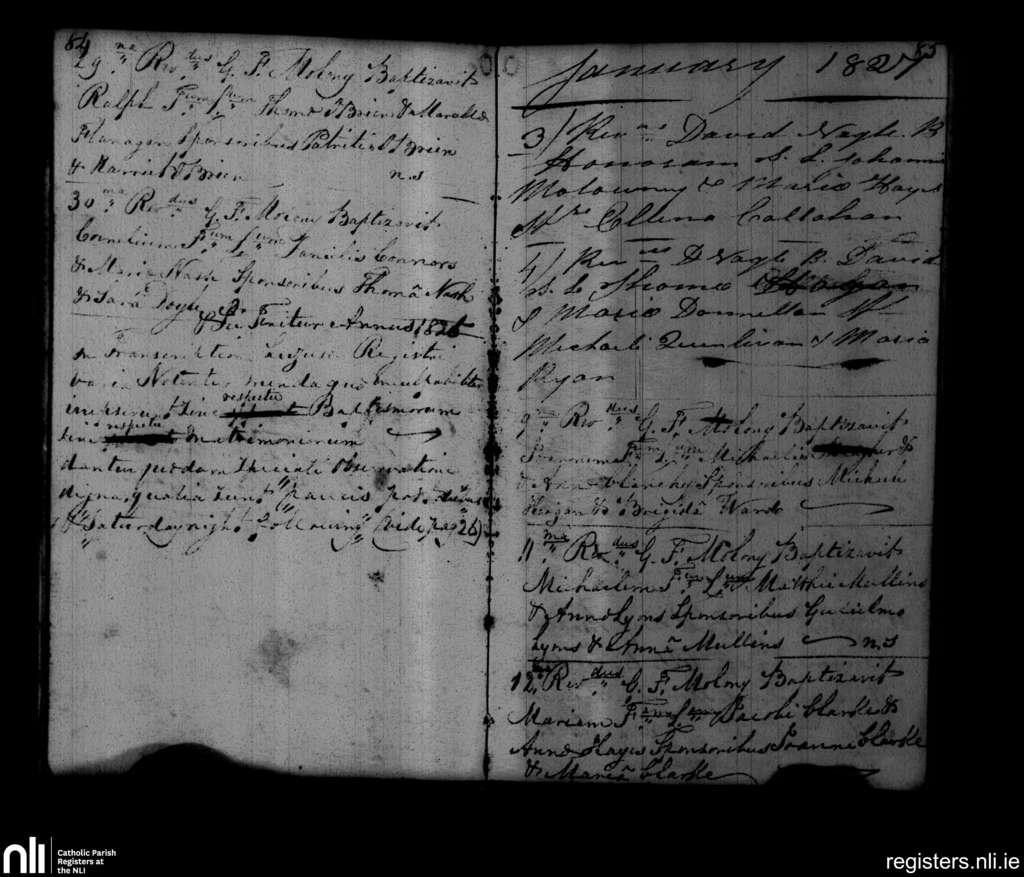 84
29 ma Rev dus G. F. Molony Baptizavit
Ralph F um L um Thomæ O'Brien & Marable
Flanagan Sponsoribus Patritio O'Brien
& Harriet O'Brien n.s
30 ma Rev dus G. F. Molony Baptizavit
Cornelium F um L um Danielis Connors
& Maria Nash Sponsoribus Thomâ Nash
& Sara Doyle
Sic Finitur Annus 1826
In Transcriptione hujus Registri
varia Notentur menda quæ
irrepserunt sive respectu Baptismorum
sive respectu Matrimoniorum
dantur quædam speciali Observatione
digna, qualia sunt "paucis post
& "Saturday night following" (vide pag 26)
85
January 1827
3/ Rev us David Nagle B
Honoram F. L. Johannis
Molowney & Maria Hayes
Sp. Ellena Callahan
4/ Rev us D Nagle B. David
F. L. Thomæ
& Maria Donnellan Sp
Michaeli Quinlivan & Maria
Ryan
9 Rev dus G. F. Molony Baptizavit
Michaelis
& Anna Blanche Sponsoribus Michaele
& Brigidâ Ward
11 ma Rev dus G. F. Molony Baptizavit
Michaelem F um L um Matthiæ Mullins
& Anna Lyons Sponsoribus Gulielmo
Lyons & Annâ Mullins n.s
12 Rev dus G. F. Molony Baptizavit
Mariam F L Jacobi Clarke &
Anna Hayes Sponsoribus Joanne Clarke
& Mariâ Clarke
nli
Catholic Parish
Registers at
the NLI
registers.nli.ie